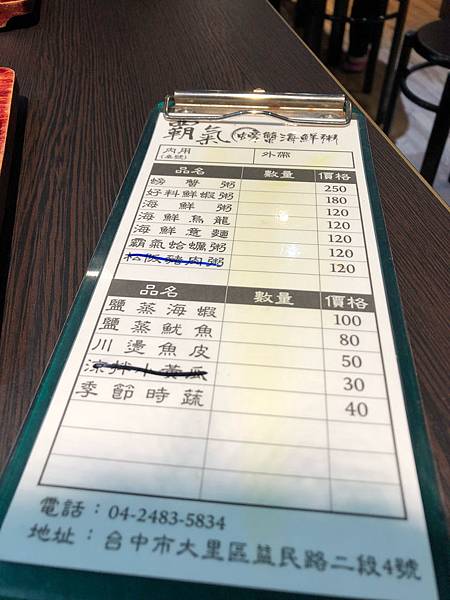 霸氣螃蟹海鮮粥
內用(桌號) 外帶
品名 數量 價格
螃蟹粥 250
好料鮮蝦粥 180
海鮮粥 120
海鮮烏龍 120
海鮮意麵 120
霸氣蛤蠣粥 120
松阪豬肉粥 120
品名 數量 價格
鹽蒸海蝦 100
鹽蒸魷魚 80
川燙魚皮 50
涼拌小黃瓜 30
季節時蔬 40
電話：04-2483-5834
地址：台中市大里區益民路二段4號